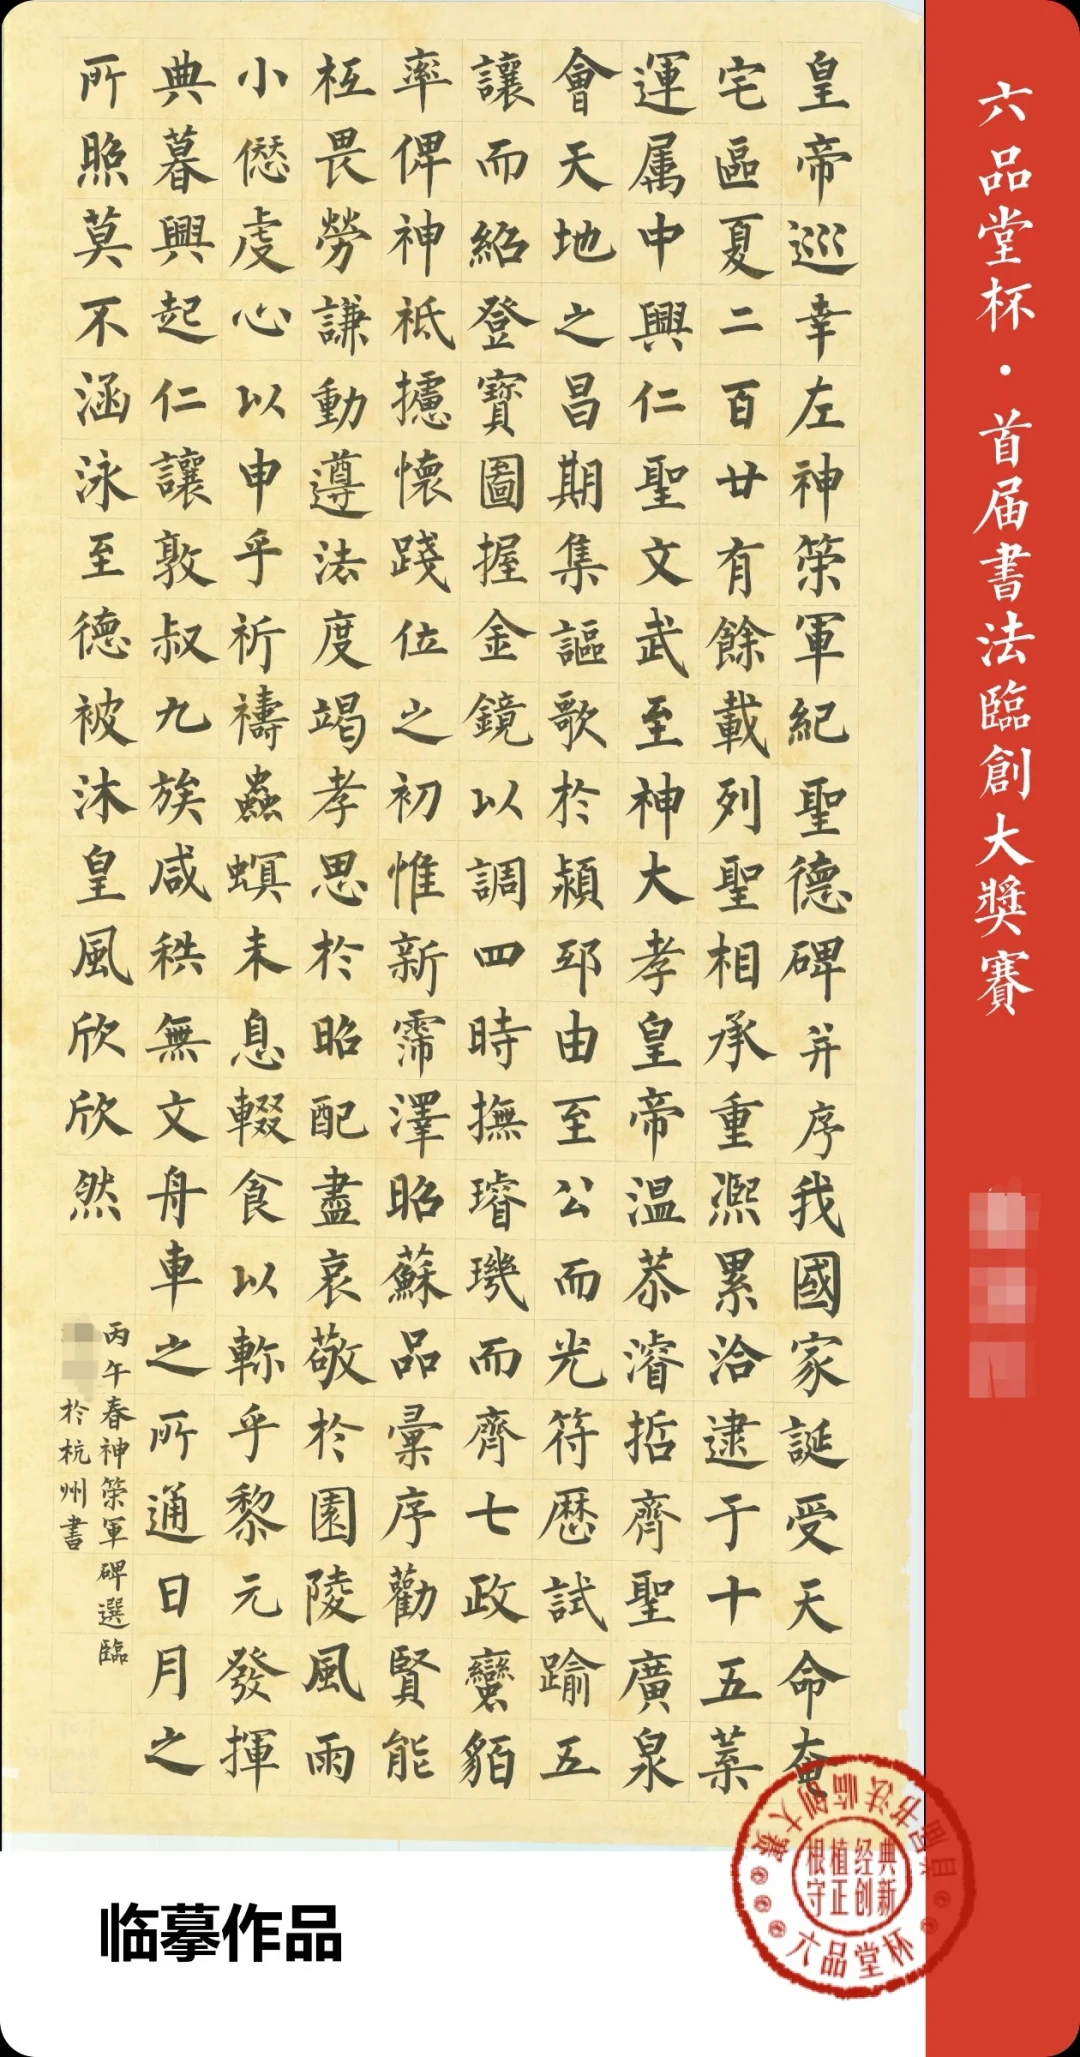 六品堂杯·首届書法臨創大獎賽
皇帝巡幸左神策軍紀聖德碑并序我國家誕受天命奄
宅區夏二百廿有餘載列聖相承重熈累洽逮于十五葉
運属中興仁聖文武至神大孝皇帝温恭濬哲齊聖廣泉
會天地之昌期集謳歌於潁邳由至公而光符歷試踰五
讓而紹登寶圖握金鏡以調四時撫璿璣而齊七政蠻貊
率俾神祇攄懷踐位之初惟新霈澤昭蘇品彙序勸賢能
枉畏勞謙動遵法度竭孝思於昭配盡哀敬於園陵風雨
小愆虔心以申乎祈禱蟲螟未息輟食以軫乎黎元發揮
典暮興起仁讓敦叙九族咸秩無文舟車之所通日月之
所照莫不涵泳至德被沐皇風欣欣然
丙午春神策軍碑選臨
於杭州書
临摹作品
六品堂杯
书法临创大赛
根植经典
守正创新